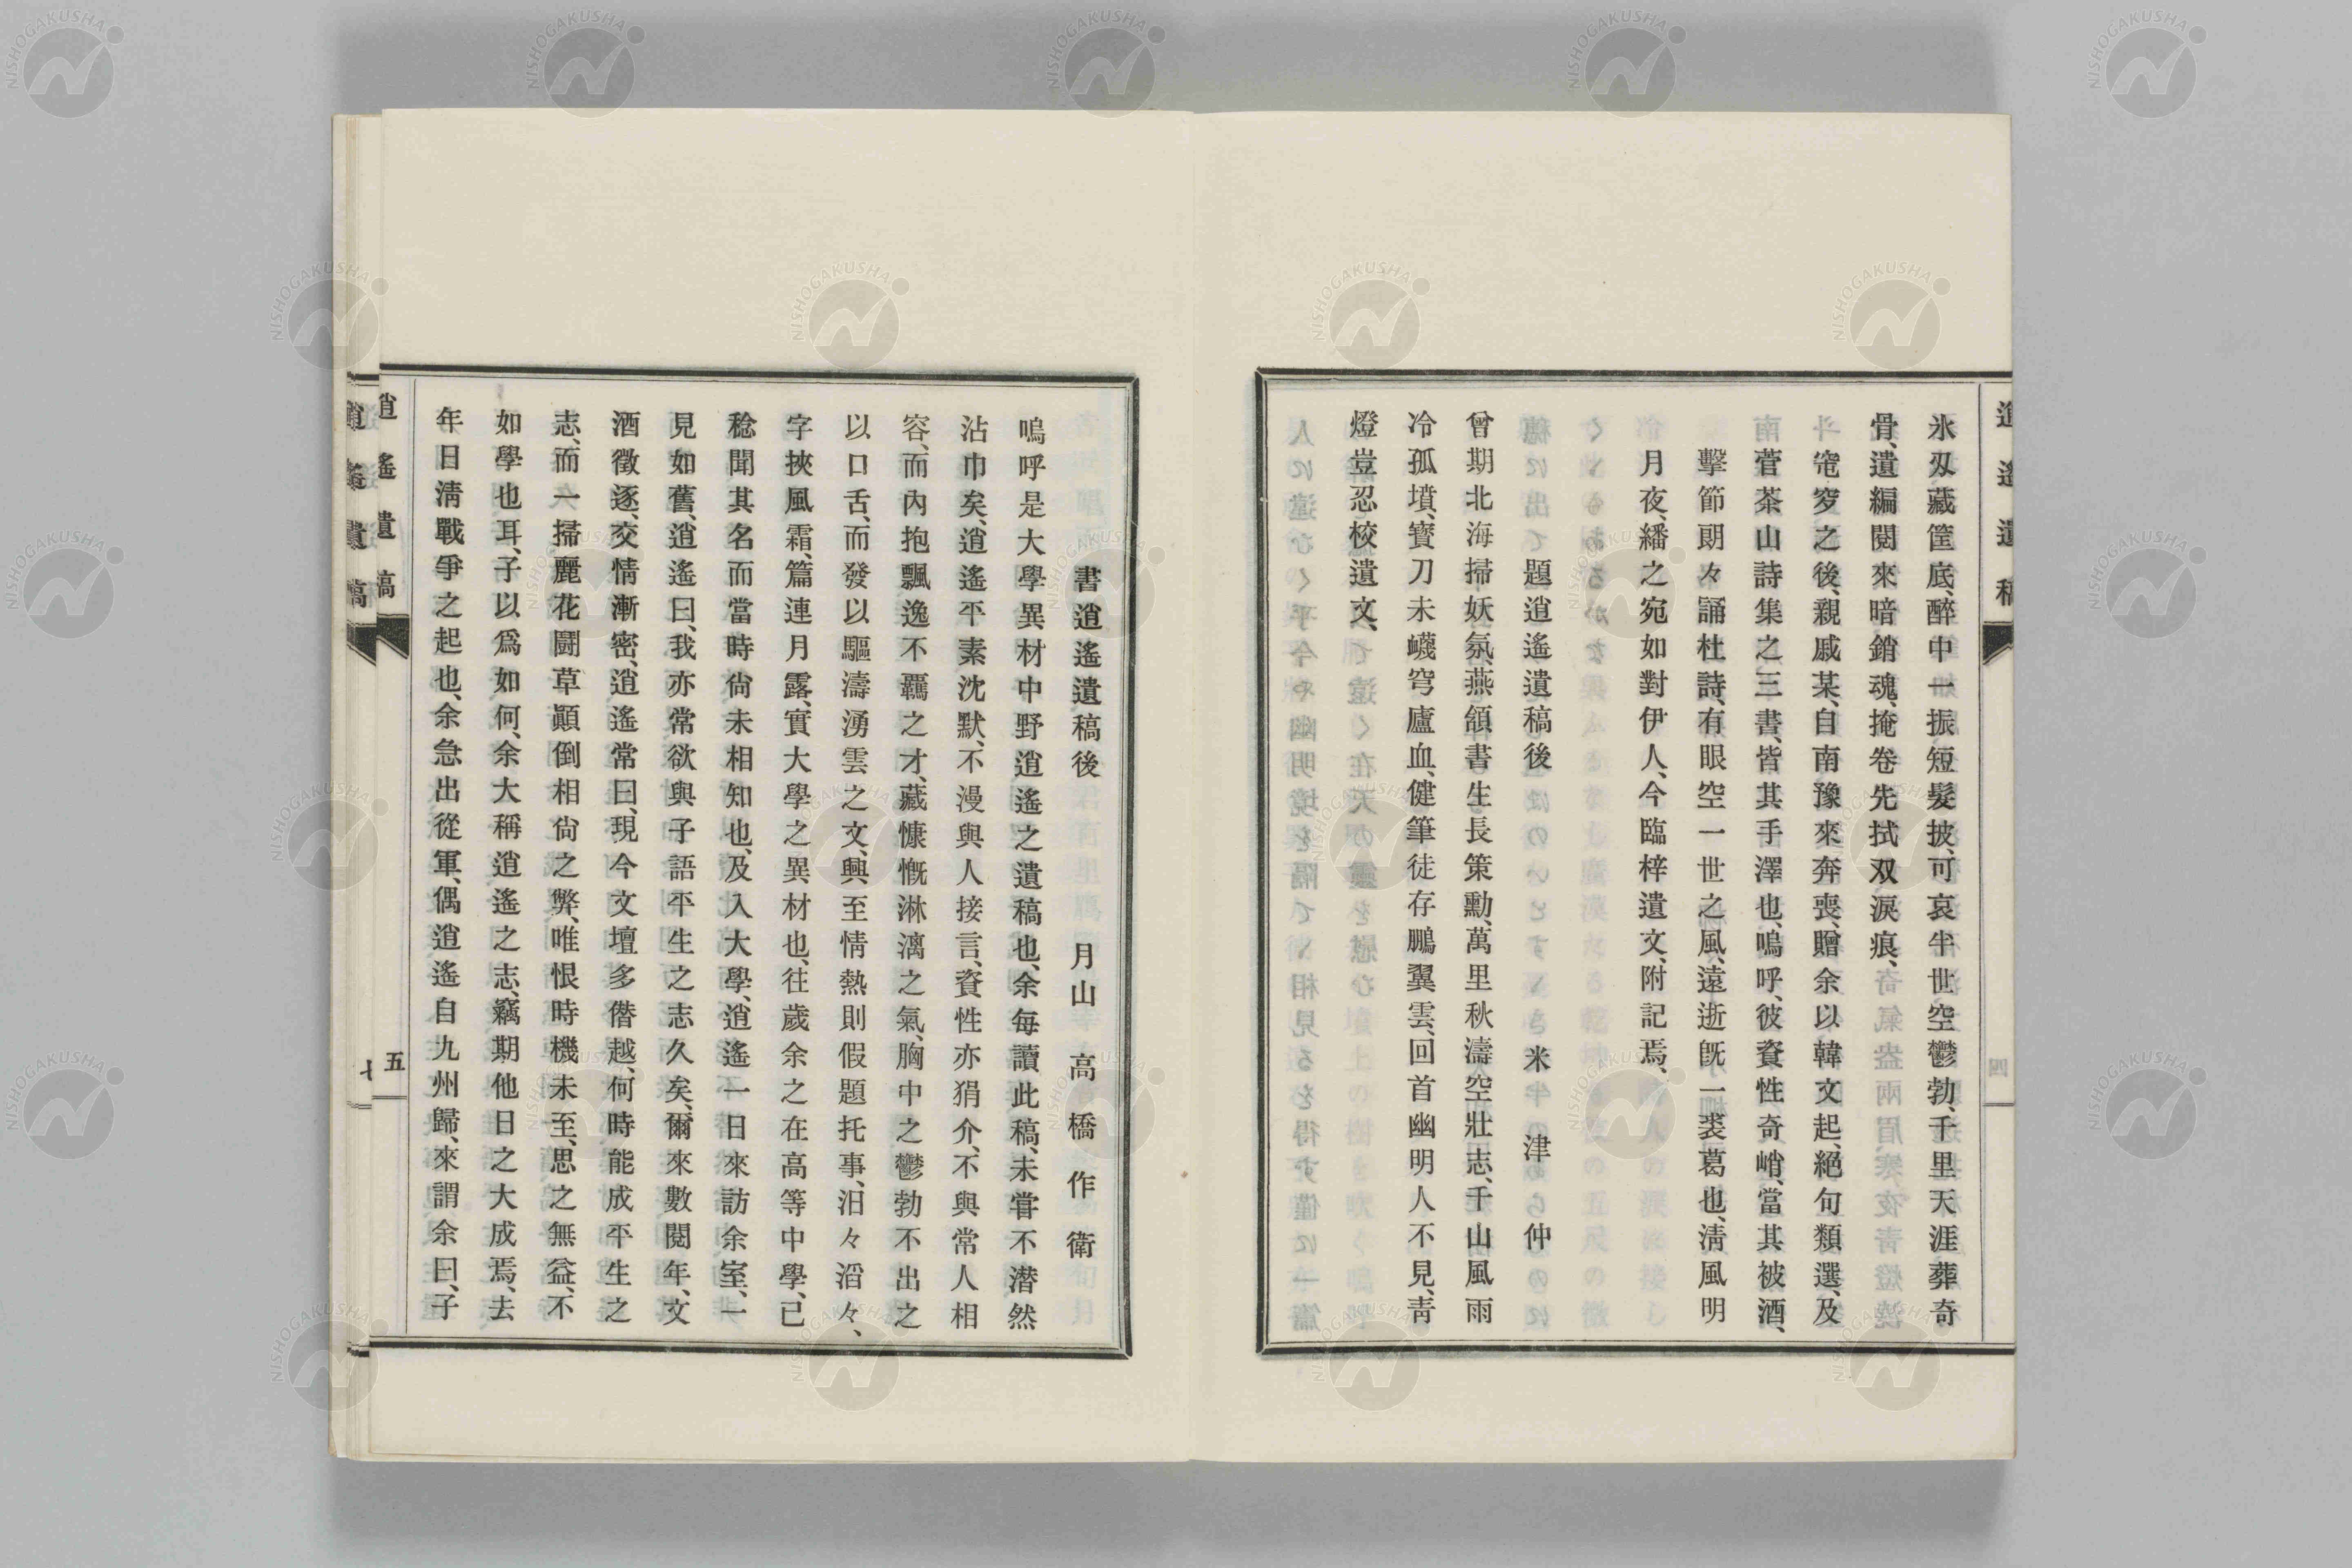 氷刄藏筐底、醉中一振短髮披、可哀半世空鬱勃、千里天涯葬奇
骨、遺編閱來暗銷魂、掩卷先拭双淚痕、
窀穸之後、親戚某、自南豫來奔喪、贈余以韓文起、絕句類選、及
菅茶山詩集之三書、皆其手澤也、嗚呼、彼資性奇峭、當其被酒、
擊節朗々誦杜詩、有眼空一世之風、遠逝旣一裘葛也、淸風明
月夜、繙之宛如對伊人、今臨梓遺文、附記焉、
題逍遙遺稿後 米津仲
曾期北海掃妖氛、燕頷書生長策勳、萬里秋濤空壯志、千山風雨
冷孤墳、寶刀未衊穹廬血、健筆徒存鵬翼雲、回首幽明人不見、靑
燈豈忍校遺文、
書逍遙遺稿後 月山 高橋作衛
嗚呼是大學異材中野逍遙之遺稿也、余每讀此稿、未嘗不潸然
沾巾矣、逍遙平素沈默、不漫與人接言、資性亦狷介、不與常人相
容、而內抱飄逸不羈之才、藏慷慨淋漓之氣、胸中之鬱勃不出之
以口舌、而發以驅濤湧雲之文、興至情熱則假題托事、汨々滔々、
字挾風霜、篇連月露、實大學之異材也、往歲余之在高等中學、已
稔聞其名而當時尙未相知也、及入大學、逍遙一日來訪余室、一
見如舊、逍遙曰、我亦常欲與子語平生之志久矣、爾來數閱年、文
酒徵逐、交情漸密、逍遙常曰、現今文壇多僭越、何時能成平生之
志、而一掃麗花鬪草顚倒相尙之弊、唯恨時機未至、思之無益、不
如學也耳、子以爲如何、余大稱逍遙之志、竊期他日之大成焉、去
年日淸戰爭之起也、余急出從軍、偶逍遙自九州歸、來謂余曰、子
逍遙遺稿
五
逍遙遺稿
七
逍遙遺稿
四